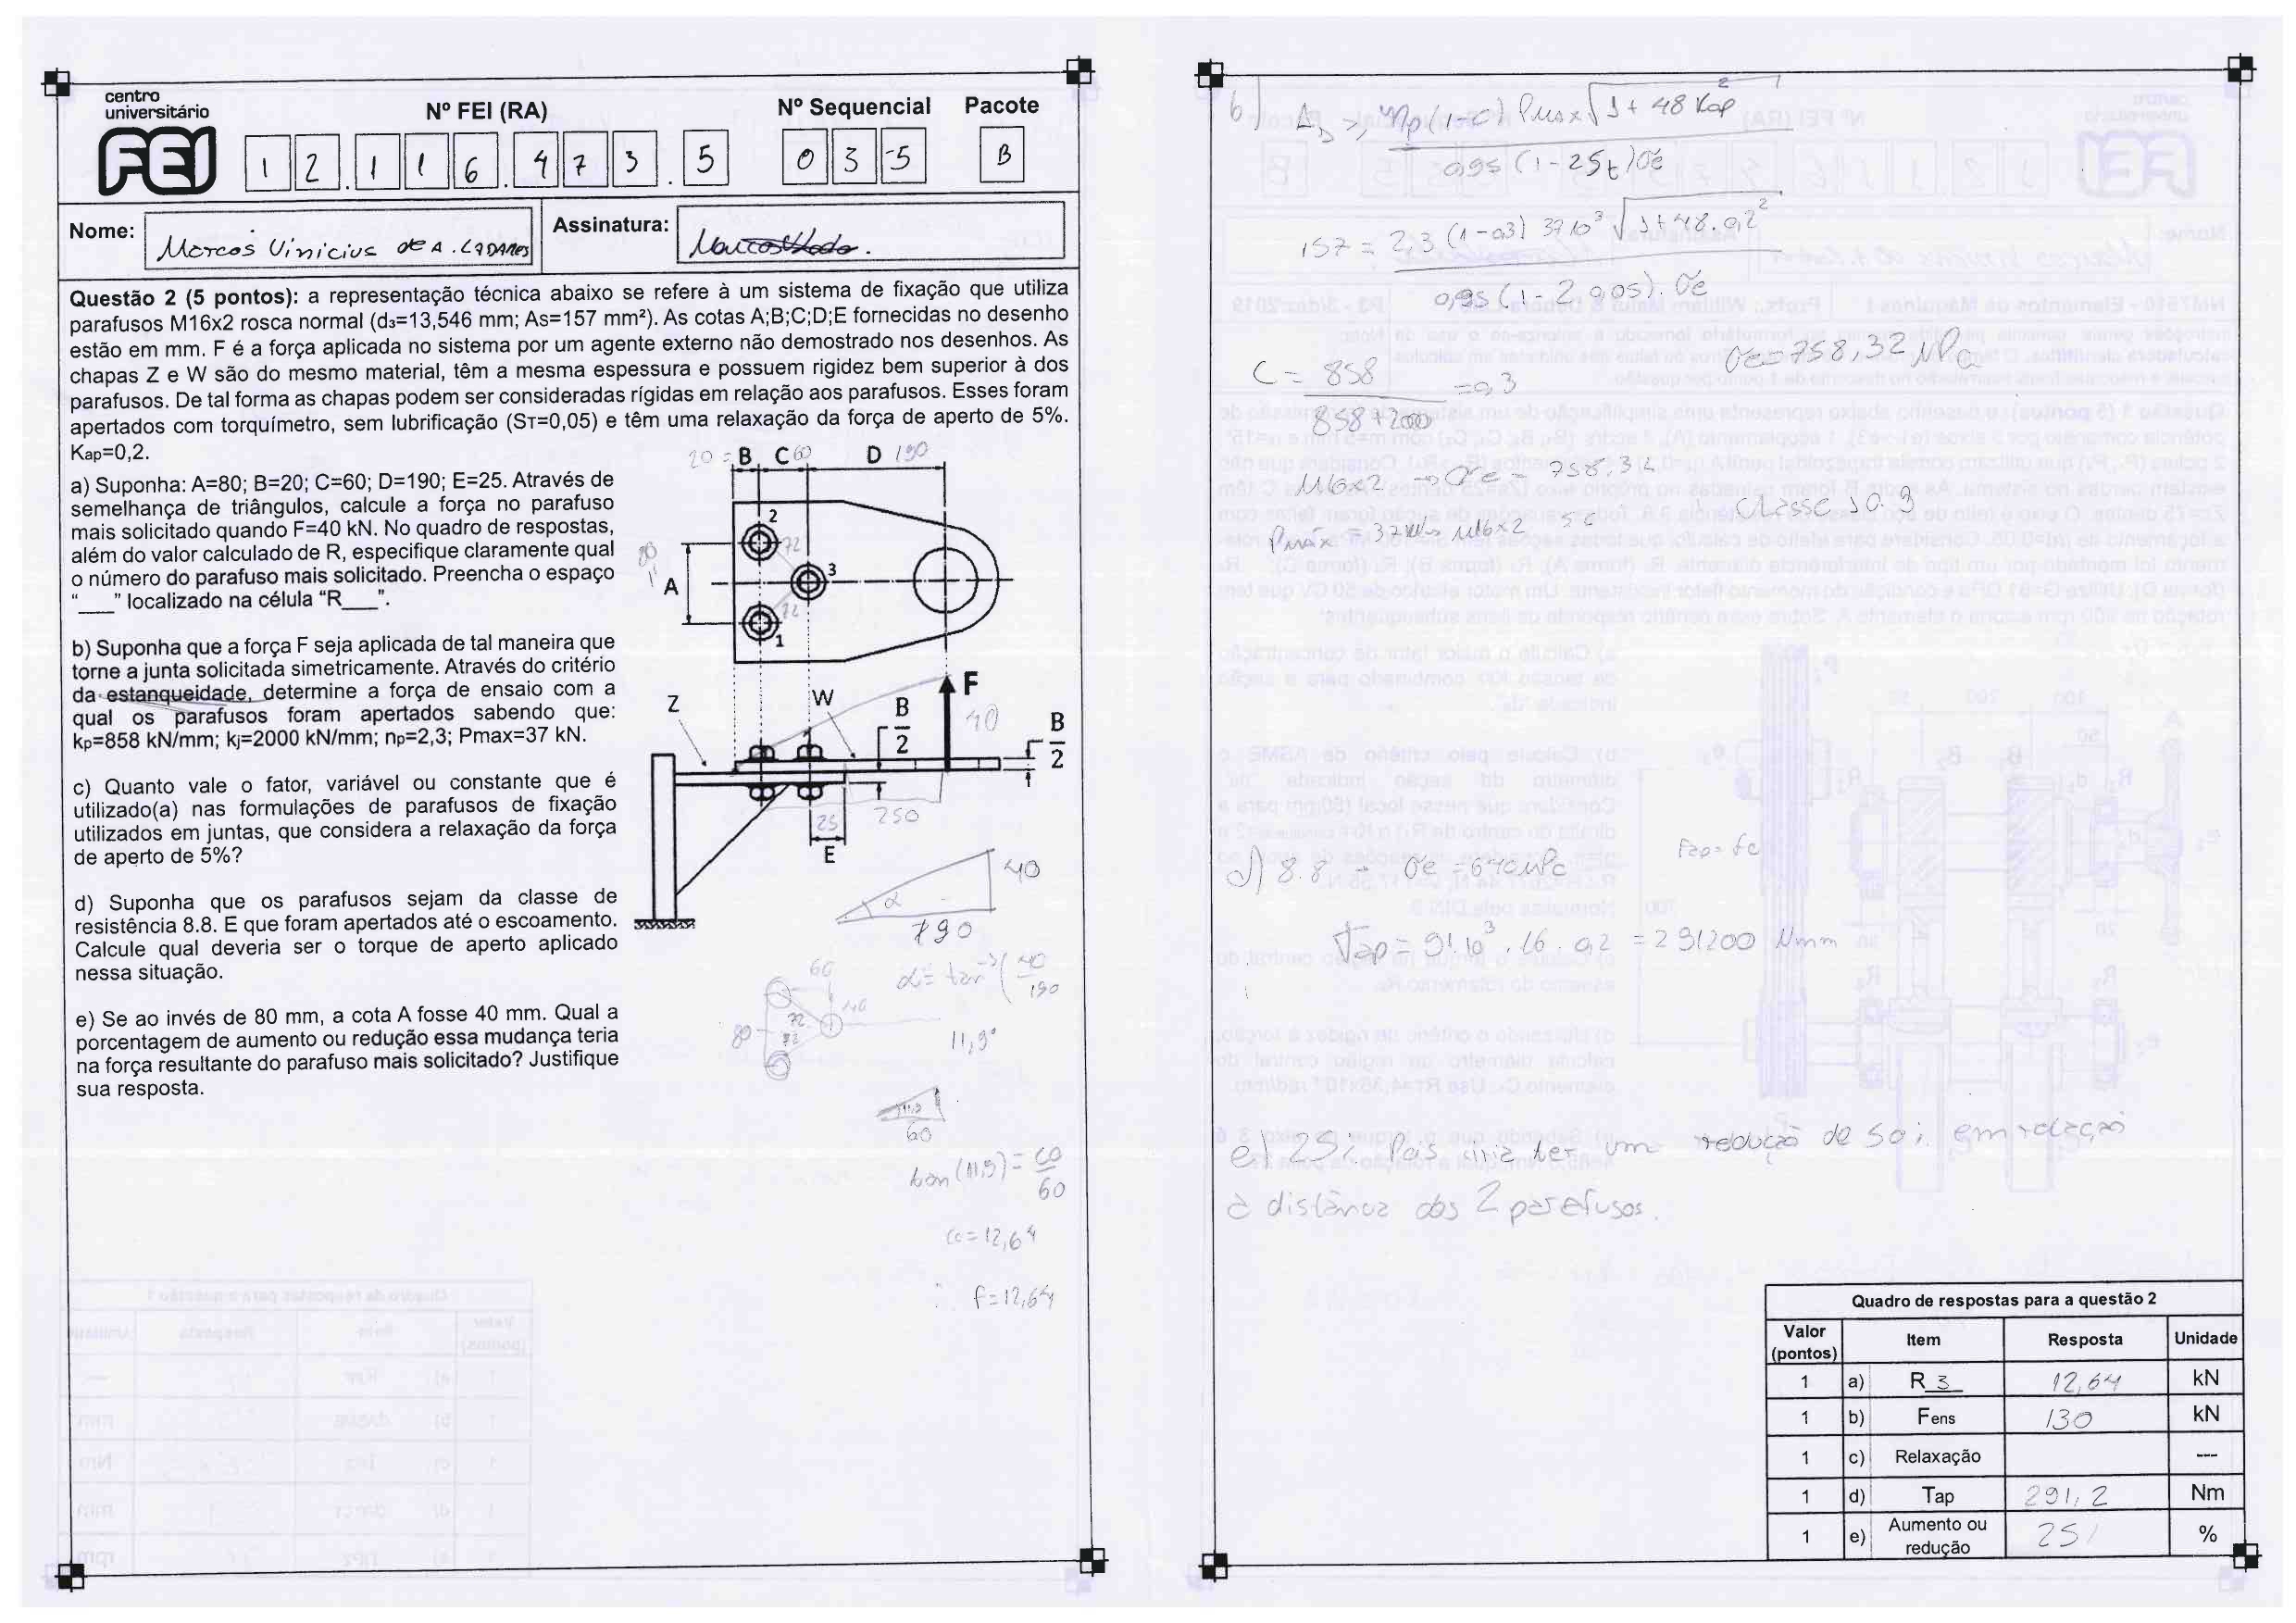 centro
universitário
FEI
Nº FEI (RA)
Nº Sequencial
Pacote
1 2 . 1 1 6 . 4 7 3 . 5
0 3 5
B
Nome:
Marcos Vinicius de A. LADANES
Assinatura:
Questão 2 (5 pontos): a representação técnica abaixo se refere à um sistema de fixação que utiliza
parafusos M16x2 rosca normal (d₃=13,546 mm; As=157 mm²). As cotas A;B;C;D;E fornecidas no desenho
estão em mm. F é a força aplicada no sistema por um agente externo não demostrado nos desenhos. As
chapas Z e W são do mesmo material, têm a mesma espessura e possuem rigidez bem superior à dos
parafusos. De tal forma as chapas podem ser consideradas rígidas em relação aos parafusos. Esses foram
apertados com torquímetro, sem lubrificação (Sᴛ=0,05) e têm uma relaxação da força de aperto de 5%.
Kap=0,2.
a) Suponha: A=80; B=20; C=60; D=190; E=25. Através de
semelhança de triângulos, calcule a força no parafuso
mais solicitado quando F=40 kN. No quadro de respostas,
além do valor calculado de R, especifique claramente qual
o número do parafuso mais solicitado. Preencha o espaço
"___" localizado na célula "R___".
b) Suponha que a força F seja aplicada de tal maneira que
torne a junta solicitada simetricamente. Através do critério
da estanqueidade, determine a força de ensaio com a
qual os parafusos foram apertados sabendo que:
kp=858 kN/mm; kj=2000 kN/mm; np=2,3; Pmax=37 kN.
c) Quanto vale o fator, variável ou constante que é
utilizado(a) nas formulações de parafusos de fixação
utilizados em juntas, que considera a relaxação da força
de aperto de 5%?
d) Suponha que os parafusos sejam da classe de
resistência 8.8. E que foram apertados até o escoamento.
Calcule qual deveria ser o torque de aperto aplicado
nessa situação.
e) Se ao invés de 80 mm, a cota A fosse 40 mm. Qual a
porcentagem de aumento ou redução essa mudança teria
na força resultante do parafuso mais solicitado? Justifique
sua resposta.
20 = B C 60 D 190
2
72
80
A
3
72
1
Z
W
B
2
F
40
B
2
25
250
E
40
α
190
α = tan⁻¹ ( 40
190
11,9°
60
40
80
72
72
11,9
60
tan (11,9) = co
60
co = 12,64
∴ f = 12,64
b) As >, np (1-c) Pmax √1 + 48 Kap²
0,95 (1 - 2St) σe
157 = 2,3 (1-0,3) 37 10³ √1 + 48 . 0,2²
0,95 (1 - 2 0,05) . σe
σe = 758,32 MPa
C = 858 = 0,3
858 + 2000
M16x2 → σe = 758,32
Classe 10.9
Pmáx = 37kN → M16x2
Fap = fe
d) 8.8 → σe = 640 MPa
Tap = 91.10³ . 16 . 0,2 = 291200 Nmm
e) 25% Pois iria ter uma redução de 50% em relação
à distância dos 2 parafusos.
Quadro de respostas para a questão 2
Valor (pontos) Item Resposta Unidade
1 a) R 3 12,64 kN
1 b) Fens 130 kN
1 c) Relaxação ---
1 d) Tap 291,2 Nm
1 e) Aumento ou redução 25% %